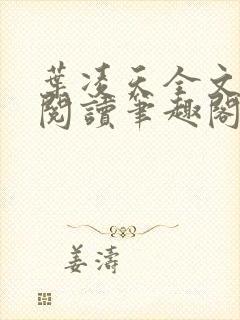 葉凌天全文
閱讀筆趣閣
姜濤